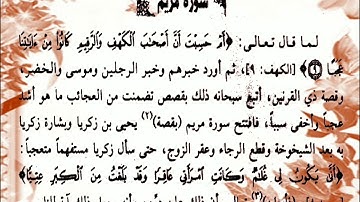 سورة مريم
لما قال تعالى: ﴿أَمْ حَسِبْتَ أَنَّ أَصْحَابَ الْكَهْفِ وَالرَّقِيمِ كَانُوا مِنْ ءَايَاتِنَا
عَجَبًا ﴿٩﴾﴾ [الكهف: ٩]، ثم أورد خبرهم وخبر الرجلين وموسى والخضر،
وقصة ذي القرنين، أتبع سبحانه ذلك بقصص تضمنت من العجائب ما هو أشد
عجباً وأخفى سبباً، فافتتح سورة مريم (بقصة)(٢) يحيى بن زكريا وبشارة زكريا
به بعد الشيخوخة وقطع الرجاء وعقر الزوج، حتى سأل زكريا مستفهماً متعجباً:
﴿أَنَّى يَكُونُ لِي غُلَامٌ وَكَانَتِ امْرَأَتِي عَاقِرًا وَقَدْ بَلَغْتُ مِنَ الْكِبَرِ عِتِيًّا﴾